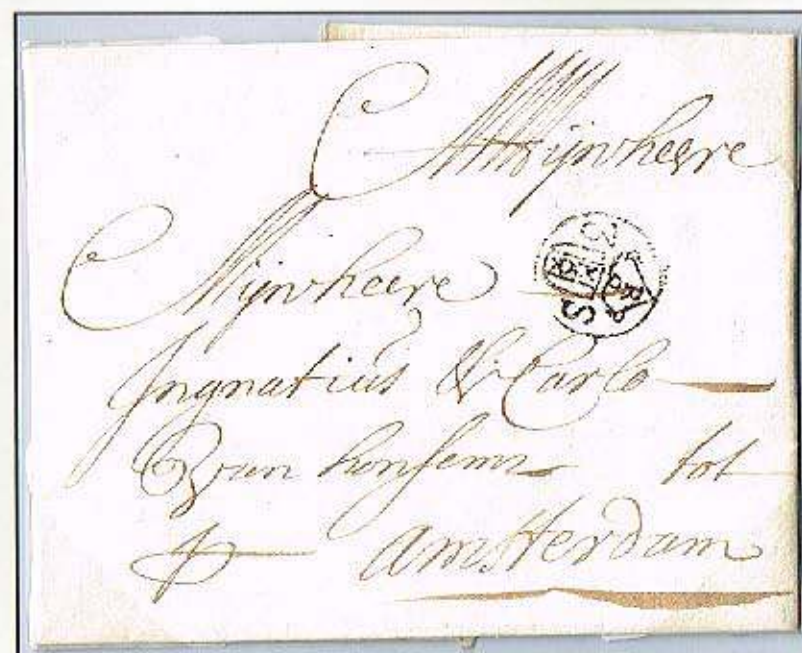 Mijnheere
Mijnheere
Ingnatius & Carlo
van honsem tot
amsterdam
3 S